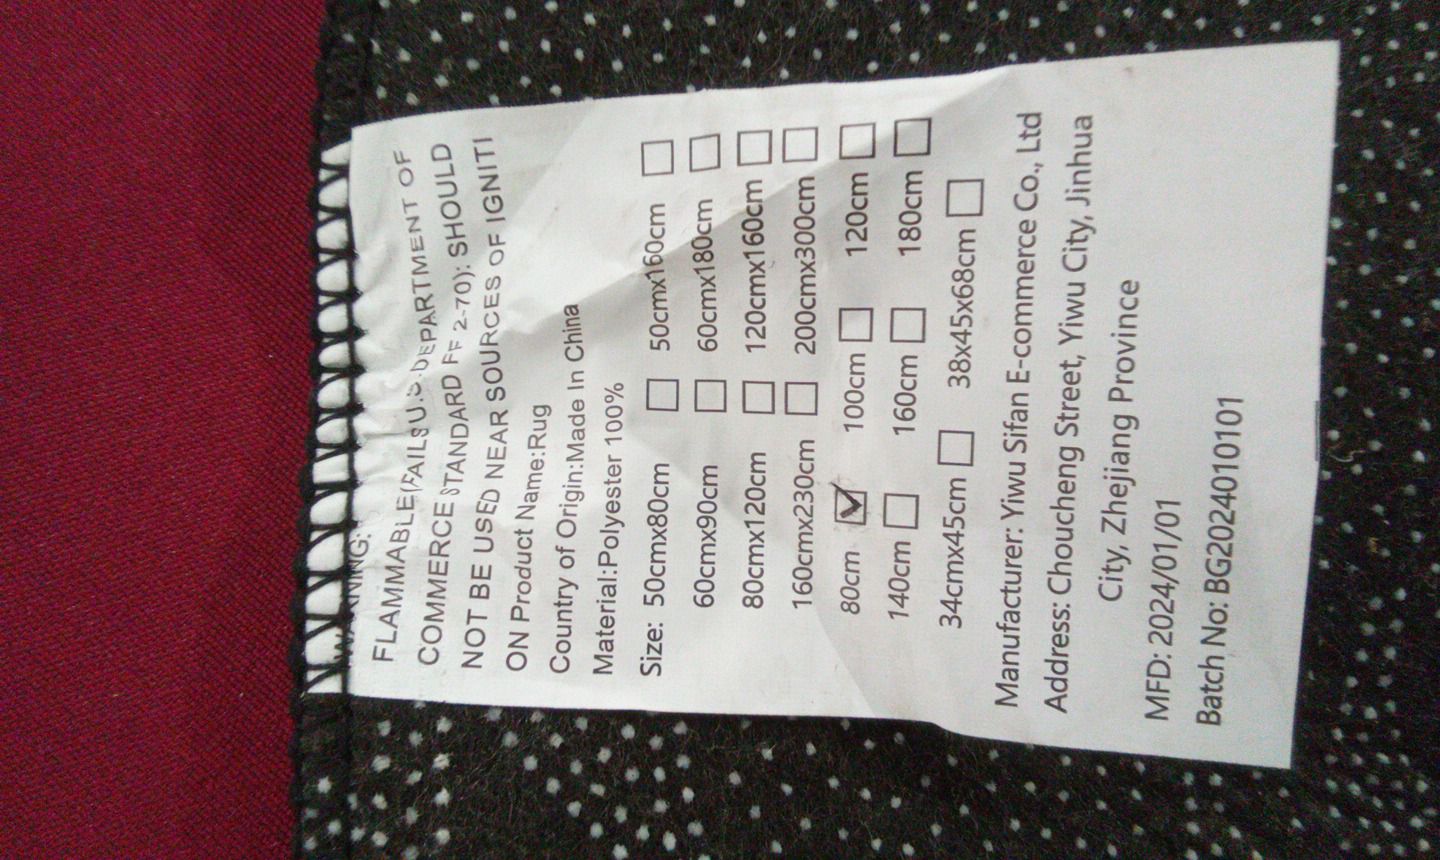 WARNING:
FLAMMABLE(FAILS U.S.DEPARTMENT OF
COMMERCE STANDARD FF 2-70): SHOULD
NOT BE USED NEAR SOURCES OF IGNITI
ON Product Name:Rug
Country of Origin:Made In China
Material:Polyester 100%
Size: 50cmx80cm ☐ 50cmx160cm ☐
60cmx90cm ☐ 60cmx180cm ☐
80cmx120cm ☐ 120cmx160cm ☐
160cmx230cm ☐ 200cmx300cm ☐
80cm ☑ 100cm ☐ 120cm ☐
140cm ☐ 160cm ☐ 180cm ☐
34cmx45cm ☐ 38x45x68cm ☐
Manufacturer: Yiwu Sifan E-commerce Co., Ltd
Address: Choucheng Street, Yiwu City, Jinhua
City, Zhejiang Province
MFD: 2024/01/01
Batch No: BG2024010101